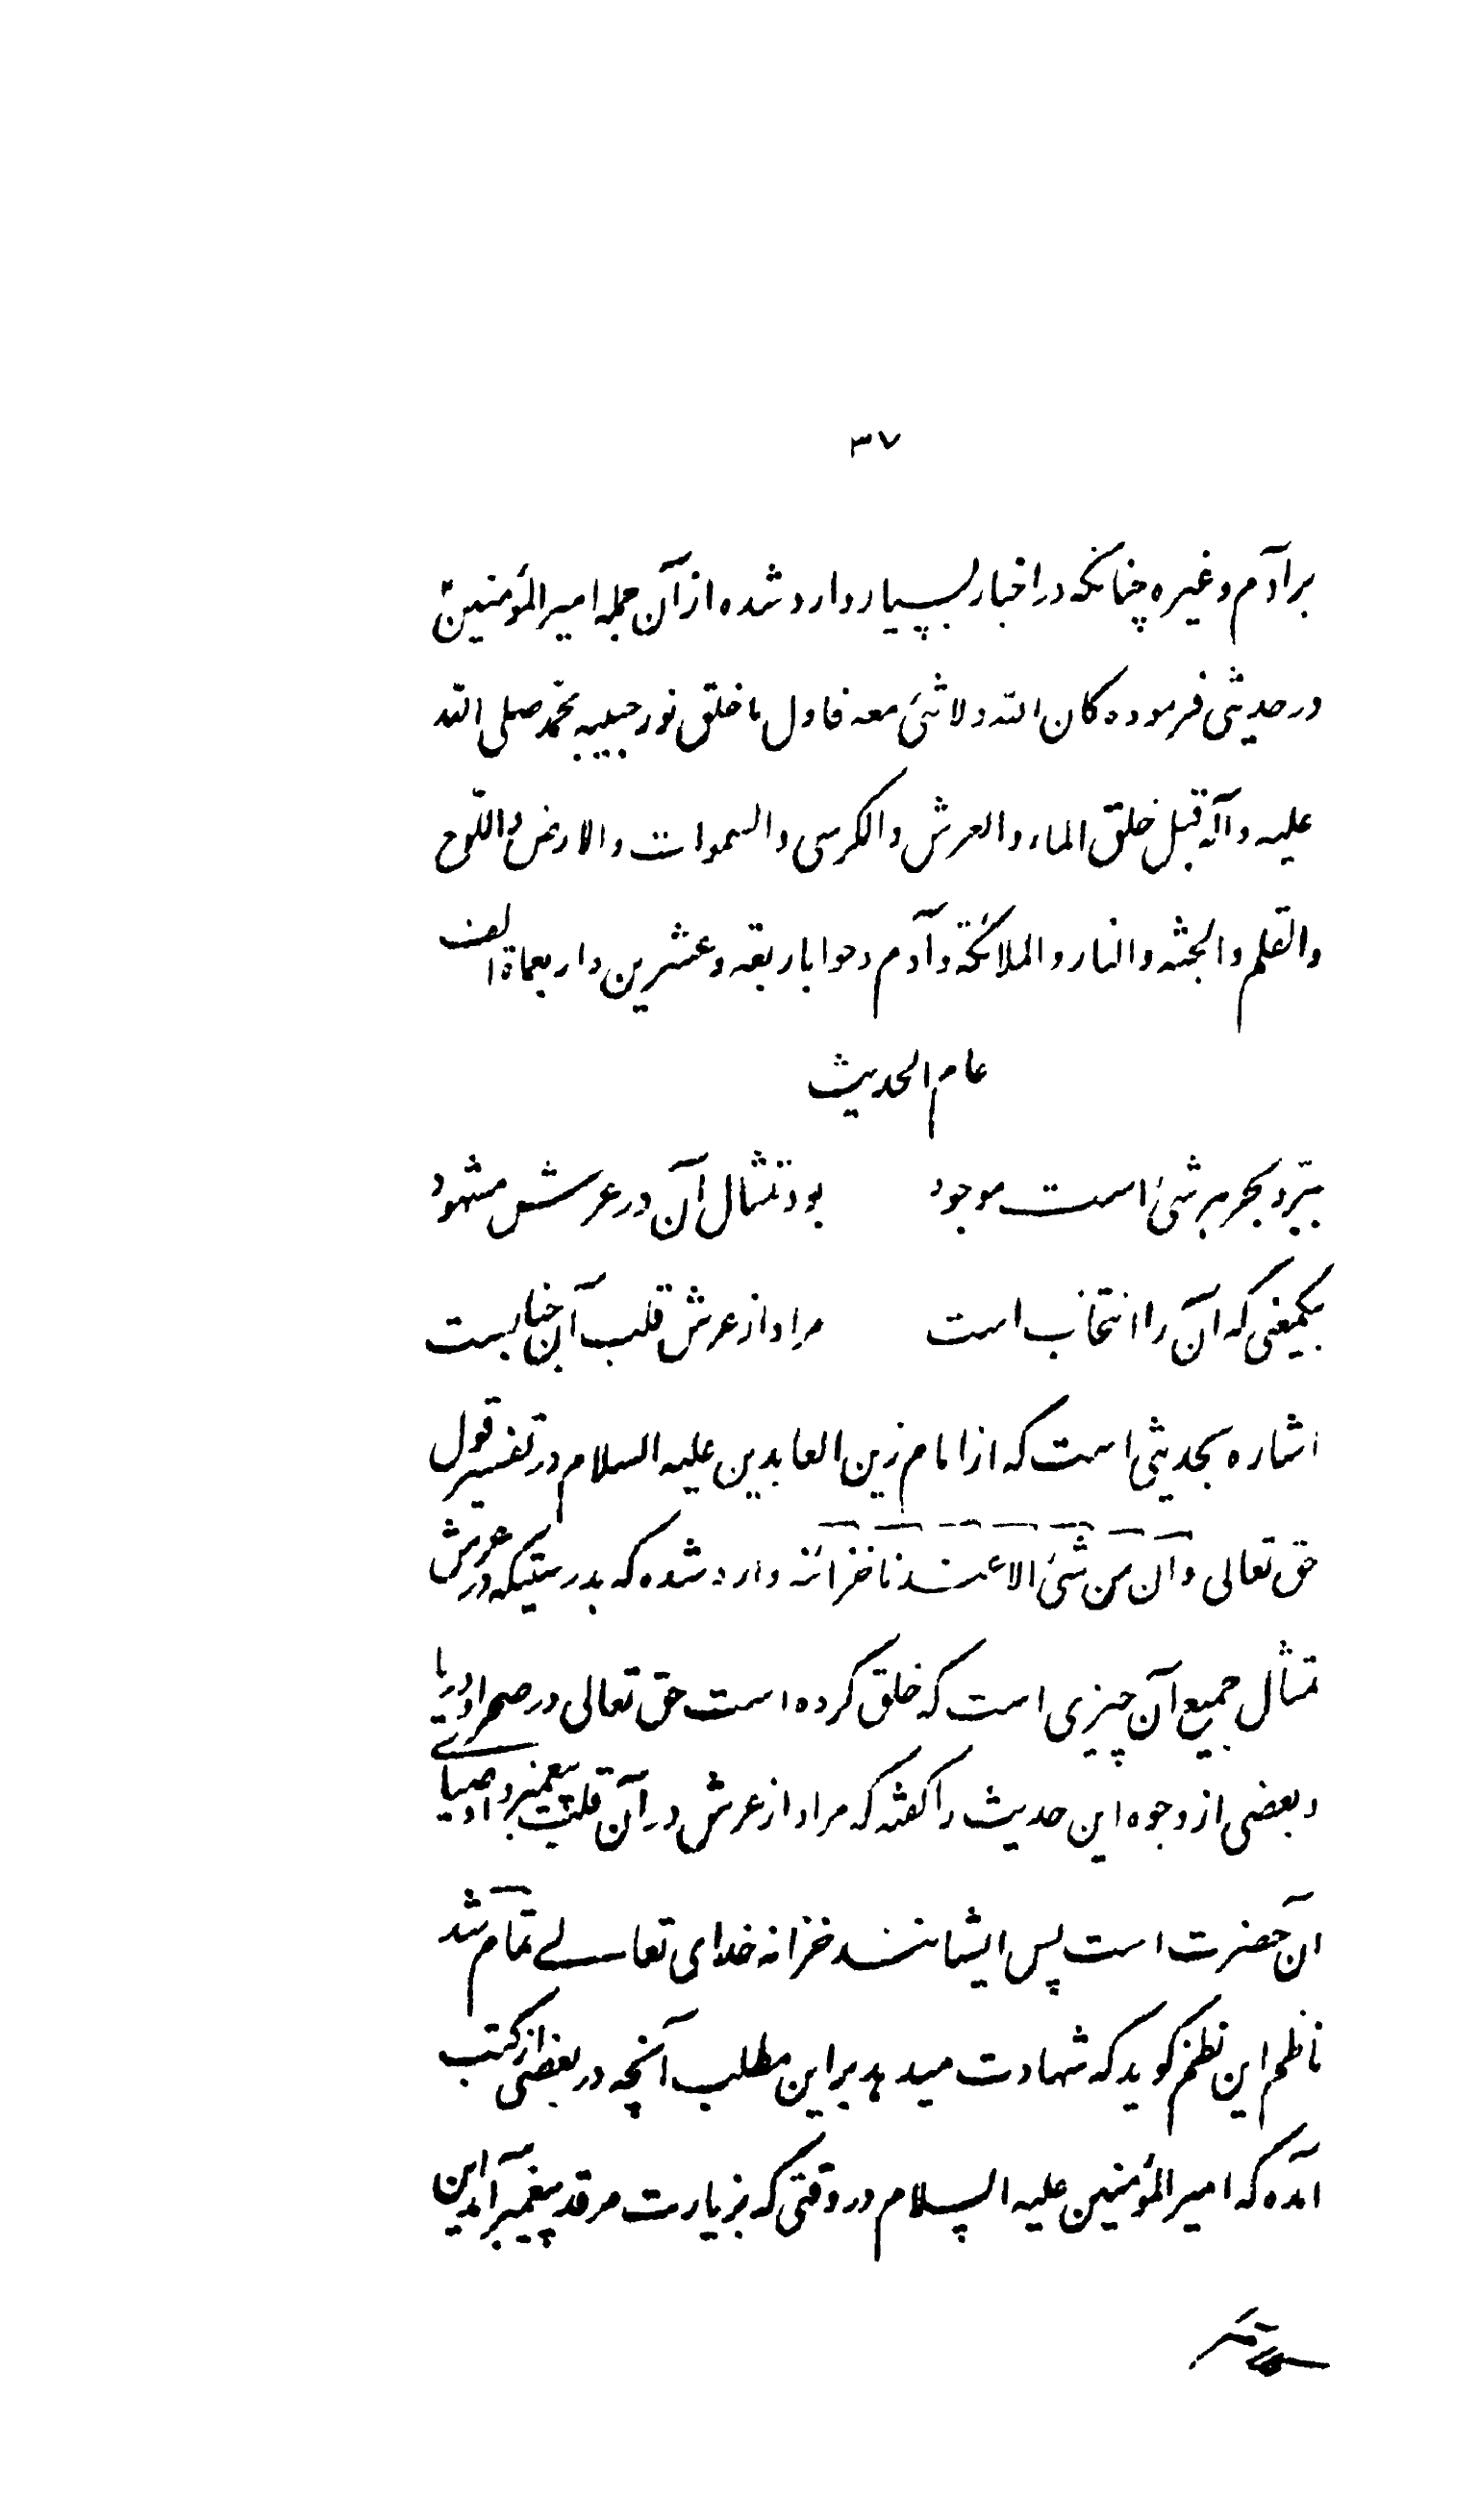 ۳۷
بر آدم و غیره چنانکه در اخبار بسیار وارد شده از آن جمله امیر المؤمنین
در حدیثی فرموده کان الله و لا شیء معه فاول ما خلق نور حبیبه محمد صلی الله
علیه و آله قبل خلق الماء و العرش و الکرسی و السموات و الارض و اللوح
والقلم و الجنه و النار و الملائکة و آدم و حوا باربعه و عشرین و اربعماة الف
عام الحدیث
ببر و بحر هر شیء است موجود بود تمثال آن در عرش مشهود
بکمعنی که آن را انتخاب است مراد از عرش قلب آن جنابست
اشاره بحدیثی است که از امام زین العابدین علیه السلام در تفسیر قول
حق تعالی و ان من شیء الا عندنا خزائنه وارد شده که بدرستیکه در عرش
تمثال جمیع آن چیزی است که خلق کرده است حق تعالی در صحرا و دریا
و بعضی از وجوه این حدیث را گفته که مراد از عرش در آن قلب پیغمبر و اوصیای
آن حضرت است پس ایشانند خزانه خدای تعالی تمام شد
ناظم این نظم گوید که شهادت میدهد بر این مطلب آنچه در بعضی از کتب
آمده که امیر المؤمنین علیه السلام در وقتی که بزیارت مرقد پیغمبر آمد این